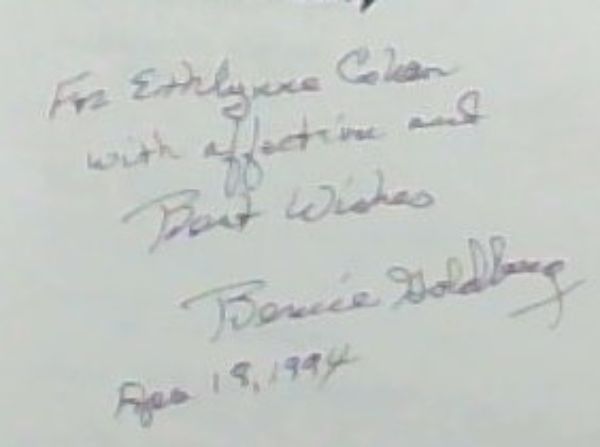 For Ethlynne Cohen
with affection and
Best Wishes
Bernie Goldberg
Apr 18, 1994